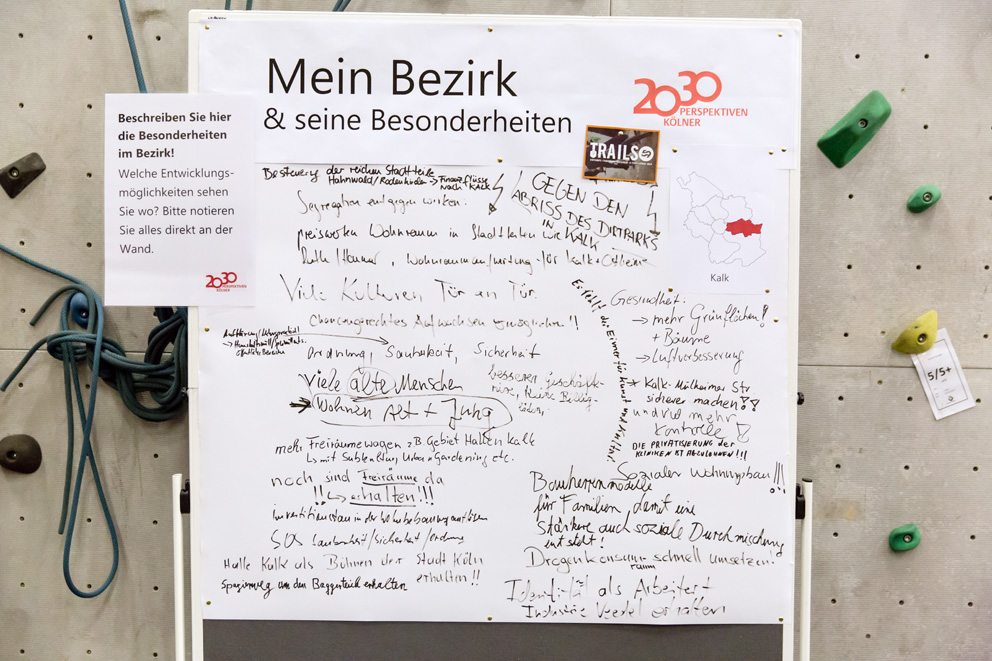 Mein Bezirk
& seine Besonderheiten
2030
PERSPEKTIVEN
KÖLNER
Beschreiben Sie hier
die Besonderheiten
im Bezirk!
Welche Entwicklungs-
möglichkeiten sehen
Sie wo? Bitte notieren
Sie alles direkt an der
Wand.
2030
PERSPEKTIVEN
KÖLNER
TRAILS
Kalk
Besteuerung der reichen Stadtteile
Hahnwald/Rodenkirchen → Finanzflüsse
nach Kalk
GEGEN DEN
ABRISS DES DIRTPARKS
IN KALK
Segregation entgegen wirken:
preiswerten Wohnraum in Stadtteilen wie
Wohnraumaufwertung für Kalk +
Viele Kulturen Tür an Tür.
Chancengerechtes Aufwachsen ermöglichen!!
Ordnung, Sauberkeit, Sicherheit
Viele alte Menschen
Wohnen Alt + Jung
besseren
mehr Freiräume wagen z.B. Gebiet Hallen Kalk
Urban Gardening etc.
noch sind Freiräume da
!! → erhalten!!!
in der
Sauberkeit/Sicherheit/Ordnung
Halle Kalk als Bühnen der Stadt Köln
erhalten!!
Spazierweg um den Baggerteich erhalten
Gesundheit:
→ mehr Grünflächen!!
+ Bäume
→ Luftverbesserung
* Kalk-Mülheimer Str
sicherer machen!!
und viel mehr
Kontrolle!
DIE PRIVATISIERUNG der
KLINIKEN IST ABZULEHNEN!!!
Sozialer Wohnungsbau!!!
Bauherrenmodelle
für Familien, damit eine
stärkere auch soziale Durchmischung
entsteht!
Drogenkonsumraum schnell umsetzen!
Identität als Arbeiter +
Industrie Veedel erhalten
5/5+